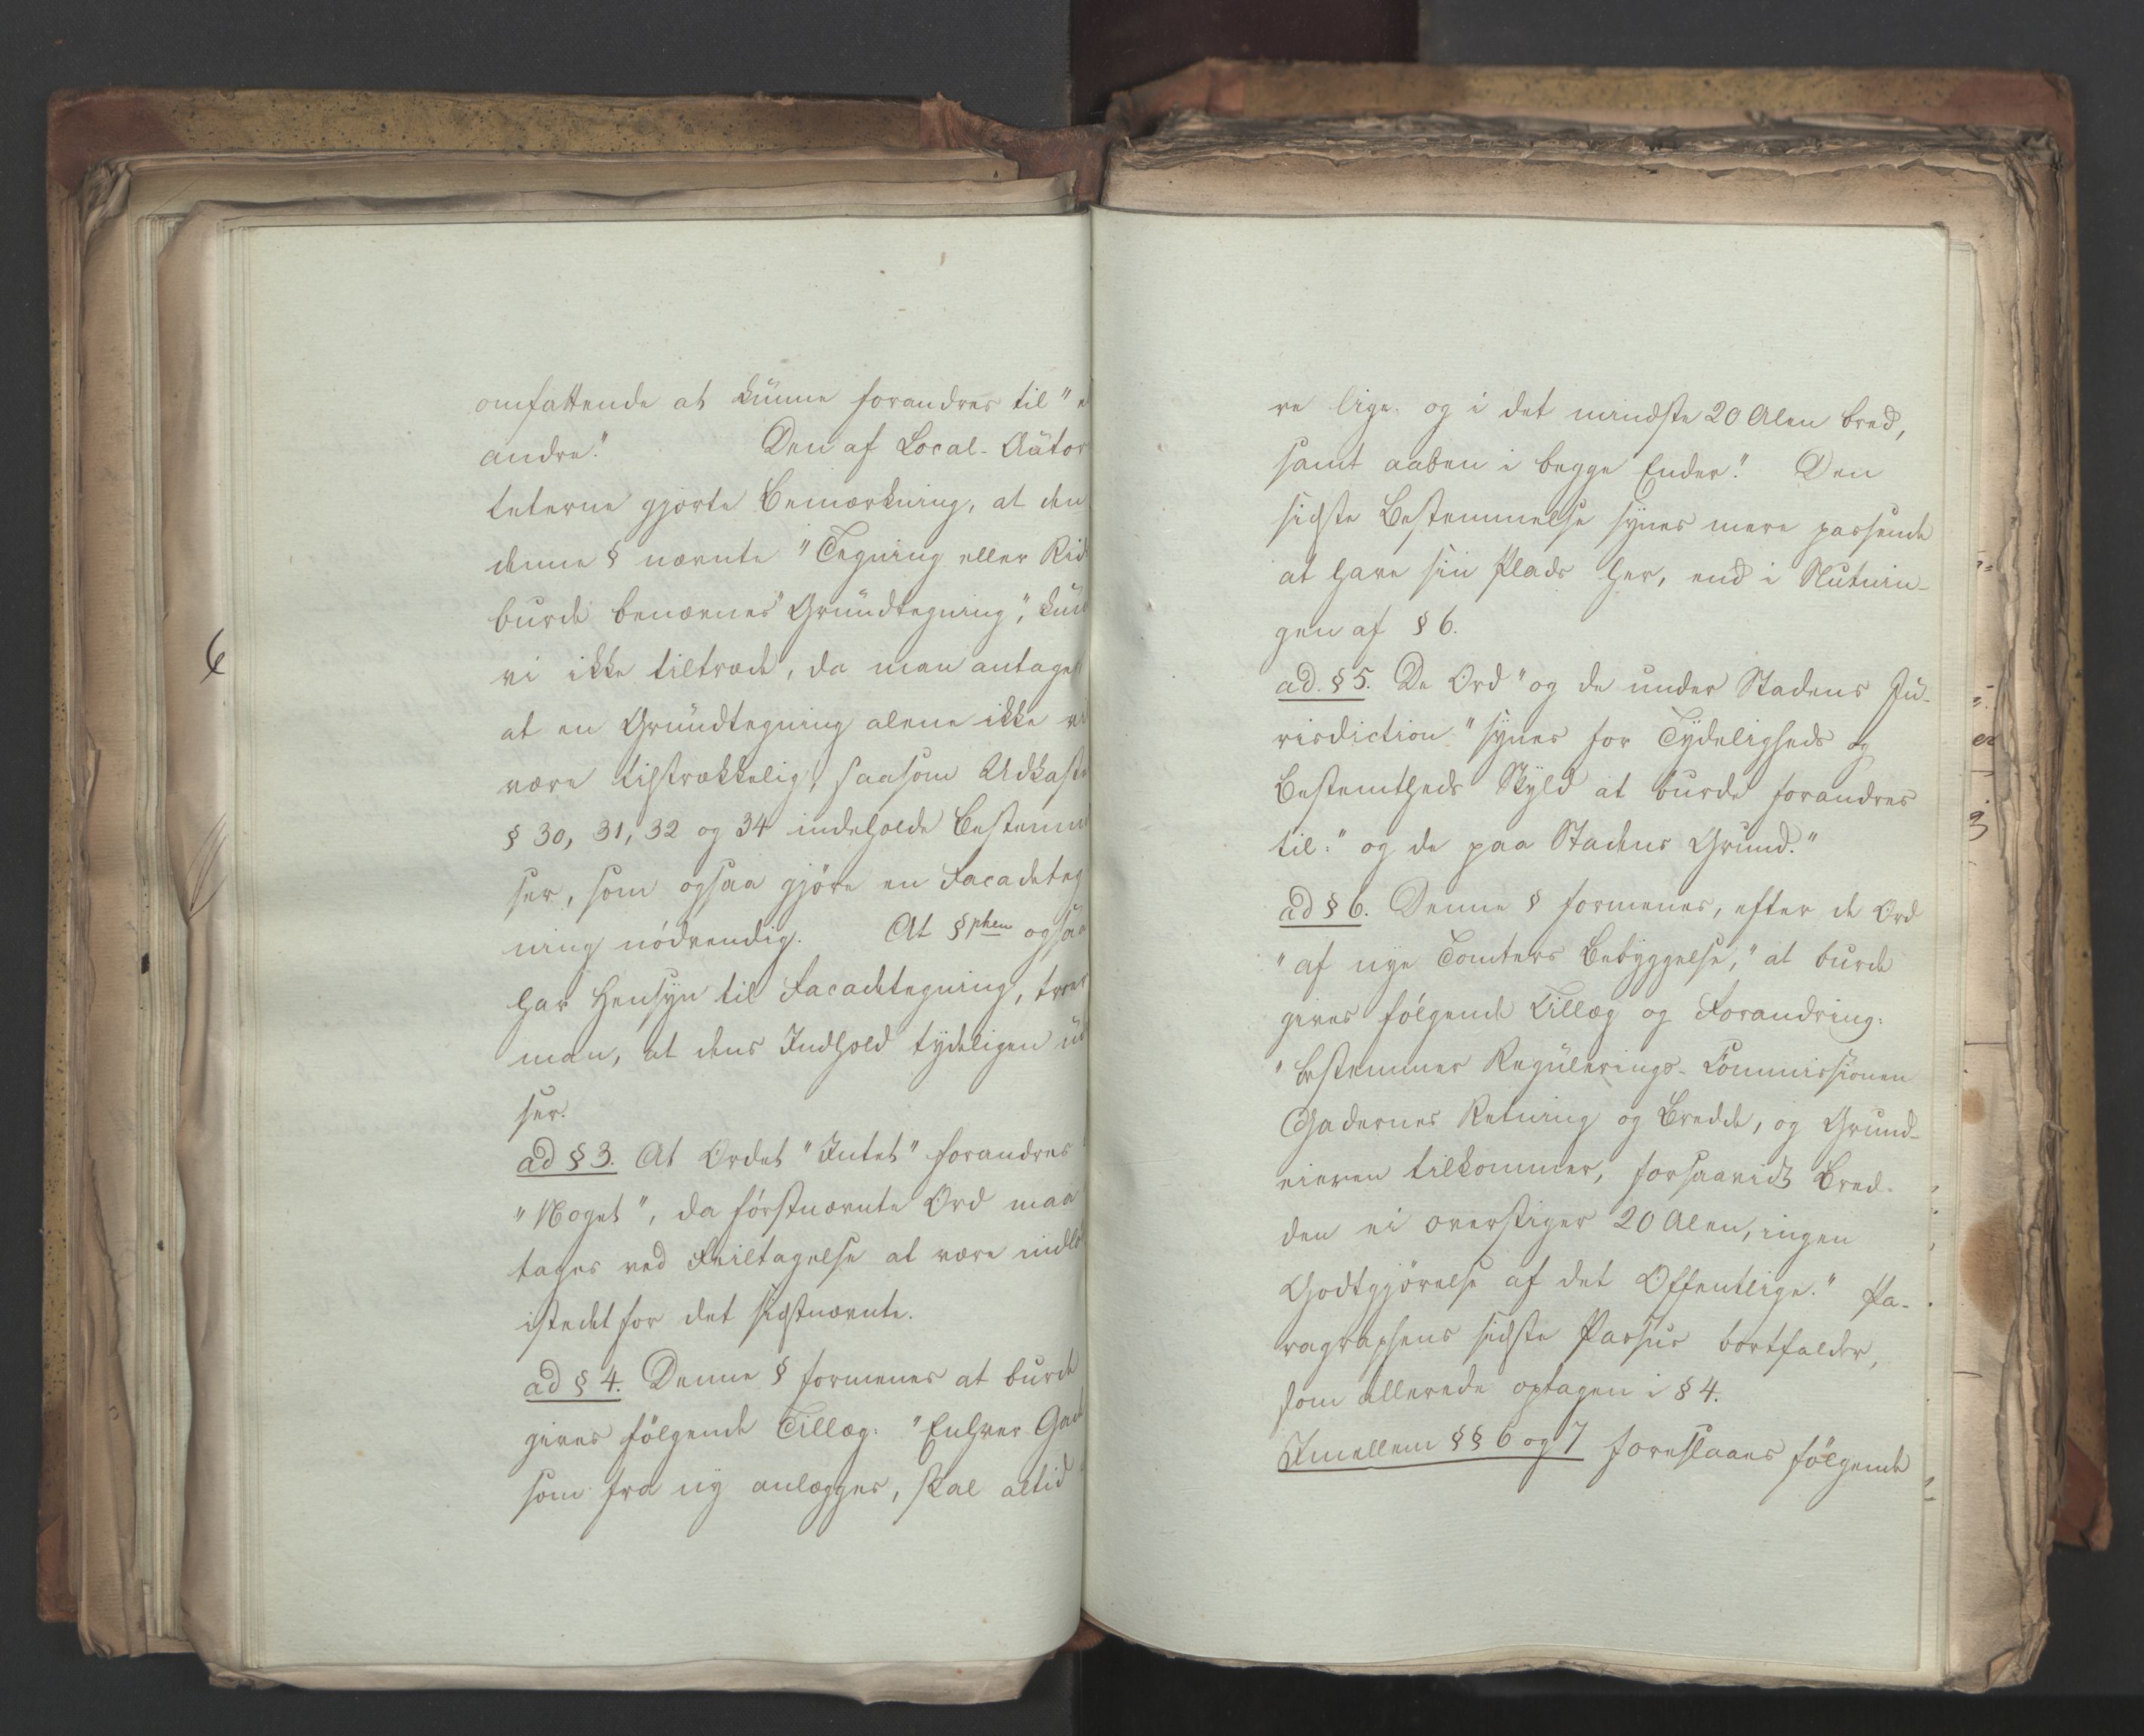 omfattende at kunne forandres til "
andre."  Den af Local-Autor
teterne gjorte Bemærkning, at den
denne § nævnte "Tegning eller Rid
burde benævnes "Grundtegning", kun
vi ikke tiltræde, da man antager
at en Grundtegning alene ikke vi
være tilstrækkelig, saasom Udkaste
§ 30, 31, 32 og 34 indeholde Bestemm
ser, som ogsaa gjöre en Facadeteg
ning nödvendig.  At §phen ogsaa
har Hensyn til Facadetegning, troer
man, at dens Indhold tydeligen ud
ser.
ad § 3. At Ordet "Intet" forandres
"Noget", da förstnævnte Ord maa
tages ved Feiltagelse at være indlö
istedet for det sidstnævnte.
ad § 4. Denne § formenes at burde
gives fölgende Tillæg: "Enhver Gade
som fra ny anlægges, skal altid
re lige og i det mindste 20 Alen bred,
samt aaben i begge Ender." Den
sidste Bestemmelse synes mere passende
at have sin Plads her, end i Slutnin-
gen af § 6.
ad. § 5. De Ord "og de under Stadens Ju-
risdiction" synes for Tydeligheds og
Bestemtheds Skyld at burde forandres
til: "og de paa Stadens Grund."
ad § 6. Denne § formenes, efter de Ord
"af nye Tomters Bebyggelse," at burde
gives fölgende Tillæg og Forandring:
"bestemmer Regulerings-Commissionen
Gadernes Retning og Bredde, og Grund-
eieren tilkommer, forsaavidt Bred-
den ei overstiger 20 Alen, ingen
Godtgjörelse af det Offentlige." Pa-
ragraphens sidste Passus bortfalder,
som allerede optagen i § 4.
Imellem §§ 6 og 7 foreslaaes fölgende